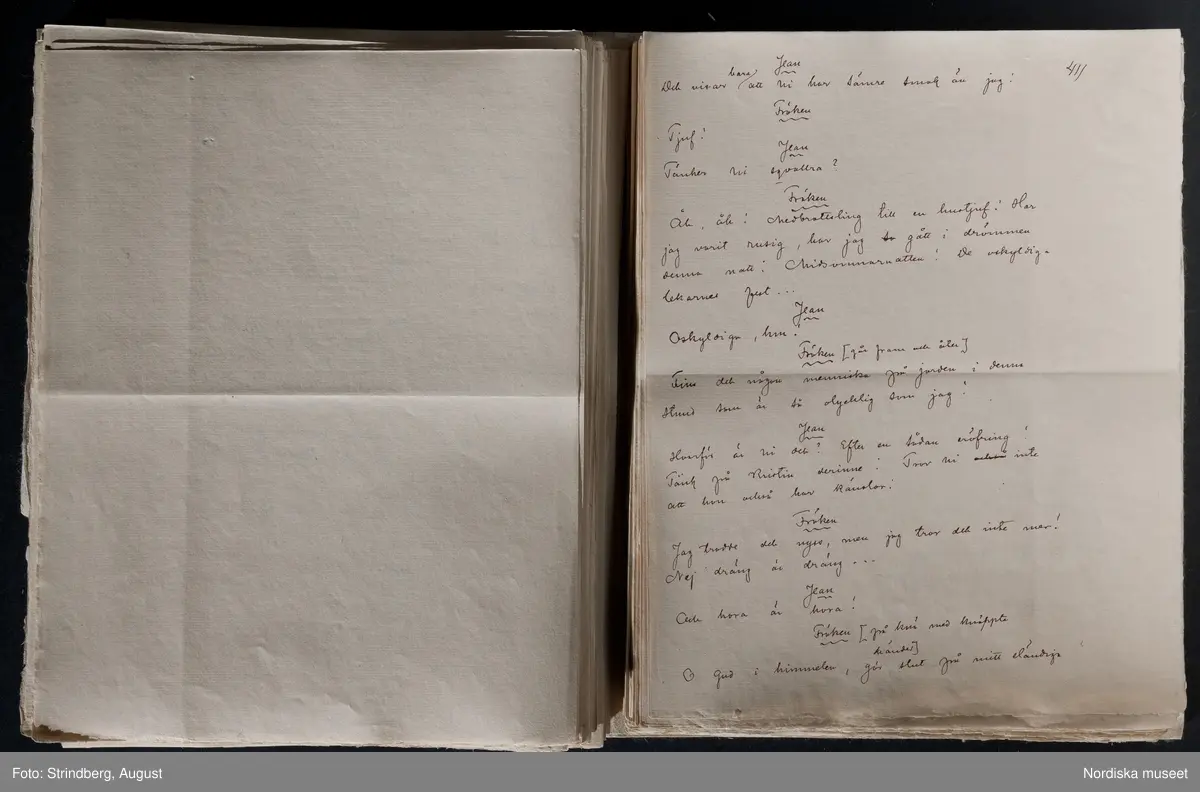 41/
Jean
Det visar bara att ni har sämre smak än jag!
Fröken
Tjuf!
Jean
Tänker ni sqvallra?
Fröken
Åh, åh! Medbrottsling till en hustjuf! Har
jag varit rusig, har jag gått i drömmen
denna natt! Midsommarnatten! De oskyldiga
lekarnes fest...
Jean
Oskyldiga, hm!
Fröken [går fram och åter]
Fins det någon menniska på jorden i denna
stund som är så olycklig som jag!
Jean
Hvarför är ni det? Efter en sådan eröfring!
Tänk på Kristin derinne! Tror ni också inte
att hon också har känslor!
Fröken
Jag trodde det nyss, men jag tror det inte mer!
Nej dräng är dräng...
Jean
Och hora är hora!
Fröken [på knä med knäppta
händer]
O Gud i himmelen, gör slut på mitt eländiga
Foto: Strindberg, August
Nordiska museet